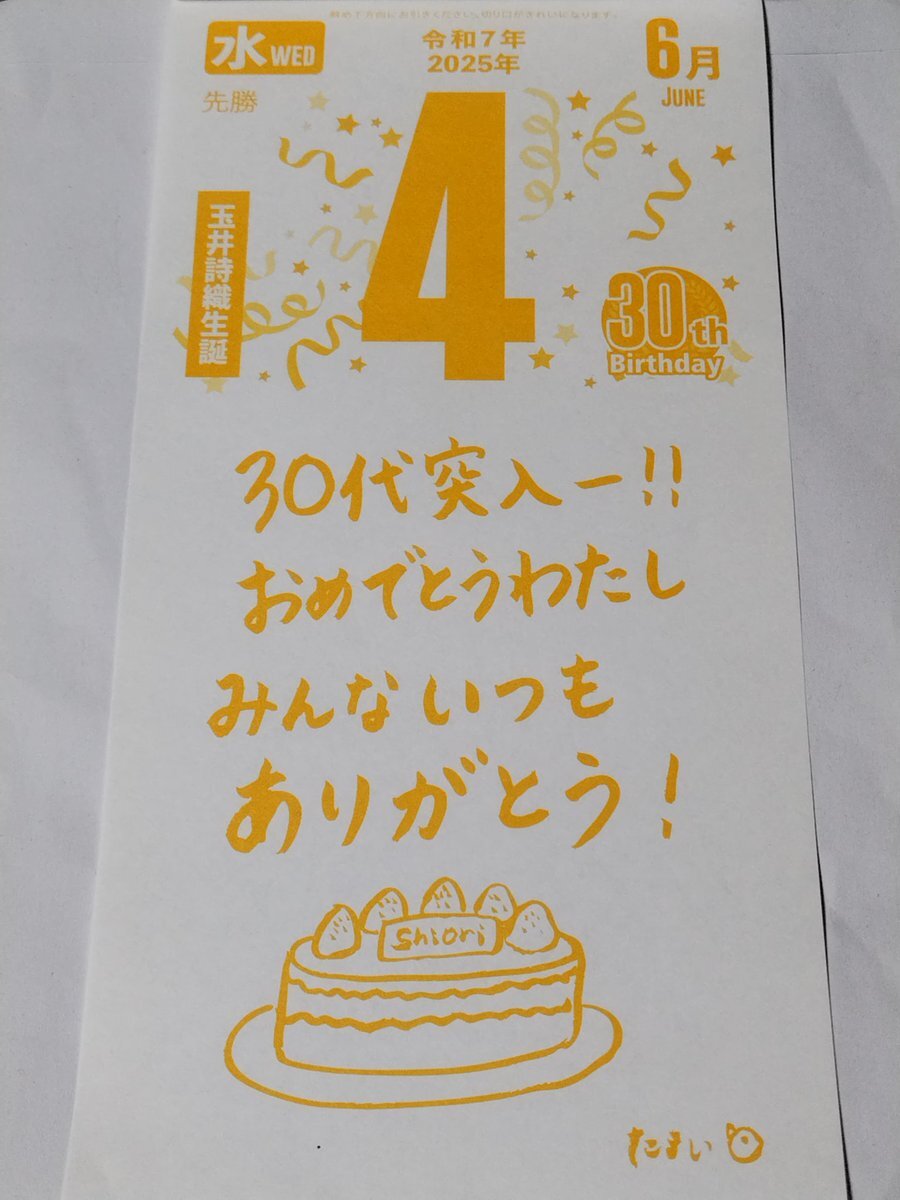 斜め下方向にお引きください。切り口がきれいになります。
水 WED
令和7年
2025年
6月
JUNE
先勝
4
玉井詩織生誕
30th
Birthday
30代突入ー!!
おめでとうわたし
みんないつも
ありがとう!
Shiori
たまい